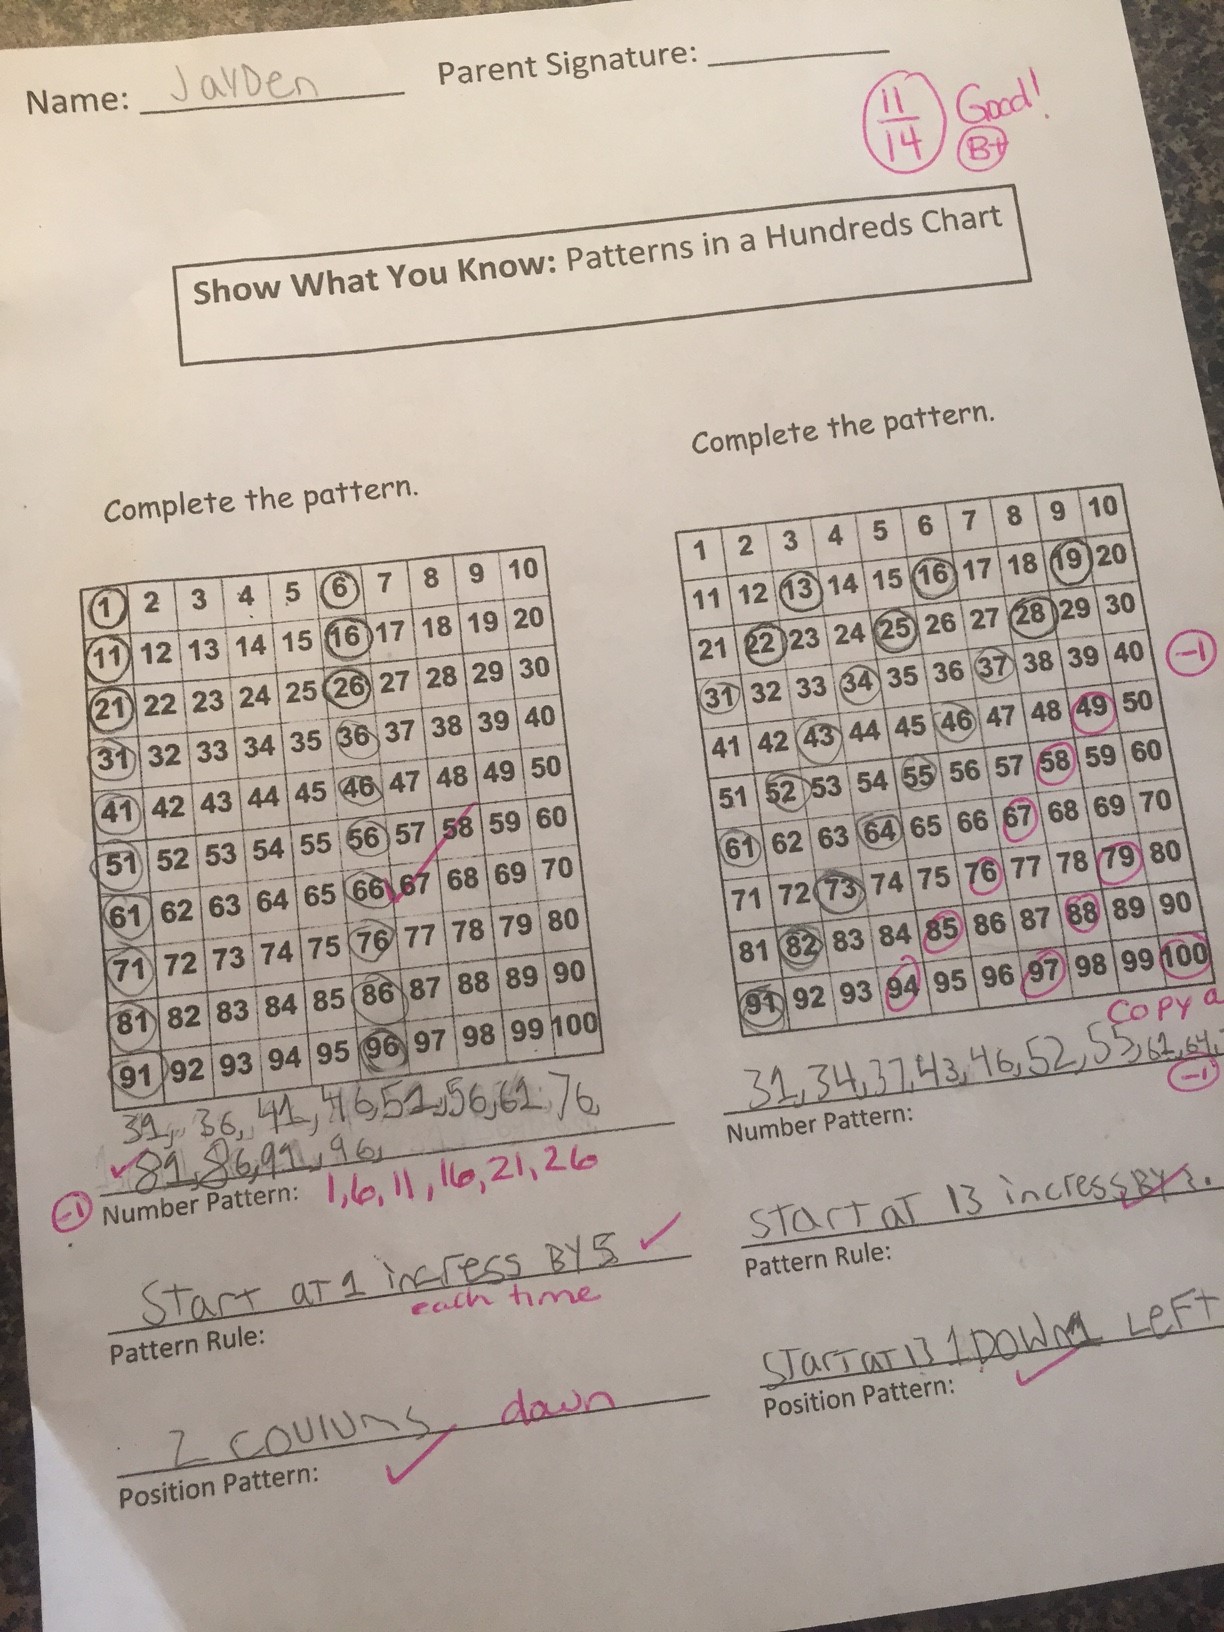 Name: Jayden Parent Signature:
11/14 Good!
B+
Show What You Know: Patterns in a Hundreds Chart
Complete the pattern.
1 2 3 4 5 6 7 8 9 10
11 12 13 14 15 16 17 18 19 20
21 22 23 24 25 26 27 28 29 30
31 32 33 34 35 36 37 38 39 40
41 42 43 44 45 46 47 48 49 50
51 52 53 54 55 56 57 58 59 60
61 62 63 64 65 66 67 68 69 70
71 72 73 74 75 76 77 78 79 80
81 82 83 84 85 86 87 88 89 90
91 92 93 94 95 96 97 98 99 100
31, 36, 41, 46, 51, 56, 61, 76,
81, 86, 91, 96,
-1 Number Pattern: 1, 6, 11, 16, 21, 26
Start at 1 incress By 5
each time
Pattern Rule:
2 coulums down
Position Pattern:
Complete the pattern.
1 2 3 4 5 6 7 8 9 10
11 12 13 14 15 16 17 18 19 20
21 22 23 24 25 26 27 28 29 30
31 32 33 34 35 36 37 38 39 40
-1
41 42 43 44 45 46 47 48 49 50
51 52 53 54 55 56 57 58 59 60
61 62 63 64 65 66 67 68 69 70
71 72 73 74 75 76 77 78 79 80
81 82 83 84 85 86 87 88 89 90
91 92 93 94 95 96 97 98 99 100
copy a
31, 34, 37, 43, 46, 52, 55, 61, 64,
-1
Number Pattern:
Start at 13 incress By 3.
Pattern Rule:
Start at 13 1 Down 1 Left
Position Pattern: